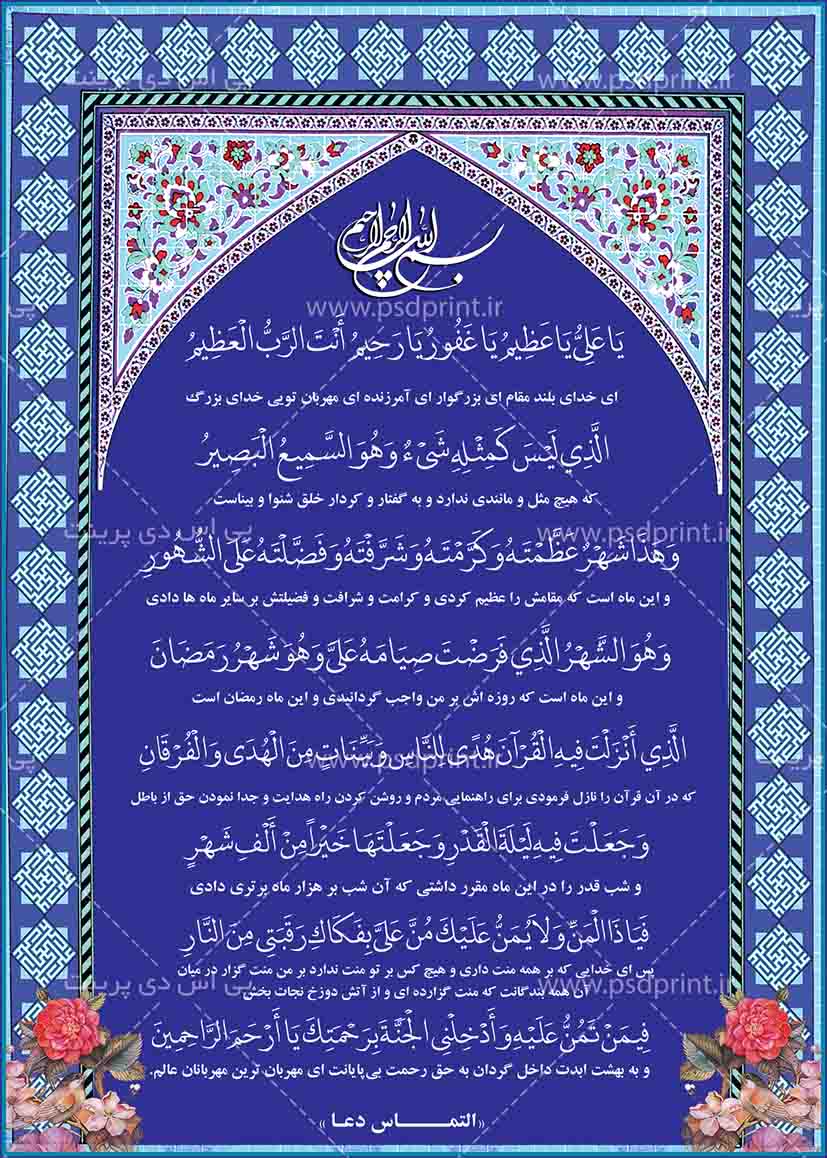 بسم الله الرحمن الرحیم
يَا عَلِيُّ يَا عَظِيمُ يَا غَفُورُ يَا رَحِيمُ أَنْتَ الرَّبُّ الْعَظِيمُ
ای خدای بلند مقام ای بزرگوار ای آمرزنده ای مهربان تویی خدای بزرگ
الَّذِي لَيْسَ كَمِثْلِهِ شَيْءٌ وَهُوَ السَّمِيعُ الْبَصِيرُ
که هیچ مثل و مانندی ندارد و به گفتار و کردار خلق شنوا و بیناست
وَهَذَا شَهْرٌ عَظَّمْتَهُ وَكَرَّمْتَهُ وَشَرَّفْتَهُ وَفَضَّلْتَهُ عَلَى الشُّهُورِ
و این ماه است که مقامش را عظیم کردی و کرامت و شرافت و فضیلتش بر سایر ماه ها دادی
وَهُوَ الشَّهْرُ الَّذِي فَرَضْتَ صِيَامَهُ عَلَيَّ وَهُوَ شَهْرُ رَمَضَانَ
و این ماه است که روزه اش بر من واجب گردانیدی و این ماه رمضان است
الَّذِي أَنْزَلْتَ فِيهِ الْقُرْآنَ هُدًى لِلنَّاسِ وَبَيِّنَاتٍ مِنَ الْهُدَى وَالْفُرْقَانِ
که در آن قرآن را نازل فرمودی برای راهنمایی مردم و روشن کردن راه هدایت و جدا نمودن حق از باطل
وَجَعَلْتَ فِيهِ لَيْلَةَ الْقَدْرِ وَجَعَلْتَهَا خَيْراً مِنْ أَلْفِ شَهْرٍ
و شب قدر را در این ماه مقرر داشتی که آن شب بر هزار ماه برتری دادی
فَيَاذَا الْمَنِّ وَلاَ يُمَنُّ عَلَيْكَ مُنَّ عَلَيَّ بِفَكَاكِ رَقَبَتِي مِنَ النَّارِ
پس ای خدایی که بر همه منت داری و هیچ کس بر تو منت ندارد بر من منت گزار در میان
آن همه بندگانت که منت گزارده ای و از آتش دوزخ نجات بخش
فِيمَنْ تَمُنُّ عَلَيْهِ وَأَدْخِلْنِي الْجَنَّةَ بِرَحْمَتِكَ يَا أَرْحَمَ الرَّاحِمِينَ
و به بهشت ابدت داخل گردان به حق رحمت بی‌پایانت ای مهربان ترین مهربانان عالم.
«التمـــاس دعا»
www.psdprint.ir
پی اس دی پرینت